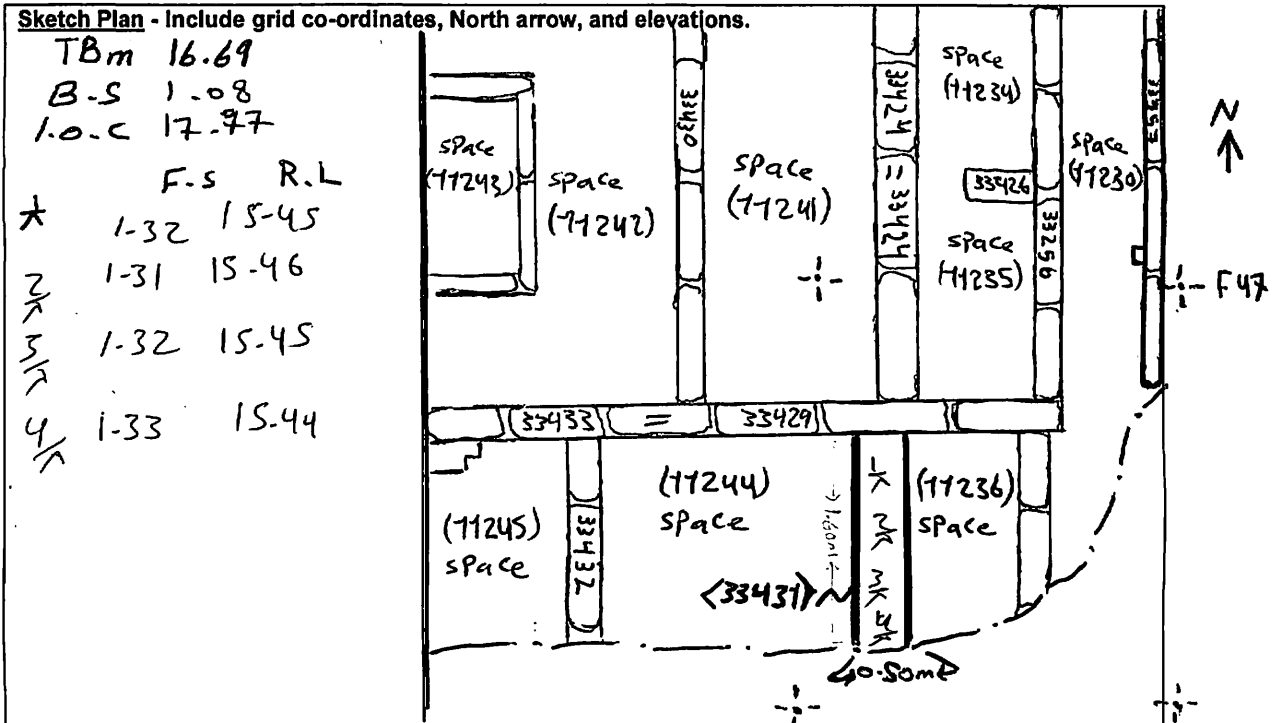 Sketch Plan - Include grid co-ordinates, North arrow, and elevations.
TBm 16.69
B.S 1.08
I.O.C 17.77
F.S R.L
1-32 15-45
2 1-31 15-46
3 1-32 15-45
4 1-33 15-44
space
(11243)
space
(11242)
33430
space
(11241)
33424 = 33424
space
(11234)
33426
space
(11235)
33256
space
(11230)
N
F47
33433 = 33429
(11245)
space
33432
(11244)
space
1.60m
(11236)
space
<33431>
0.50m